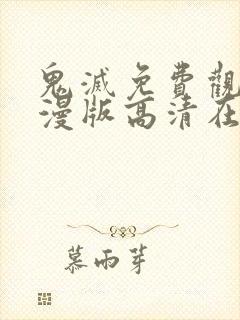 鬼滅免費觀
漫版高清在
慕雨芽